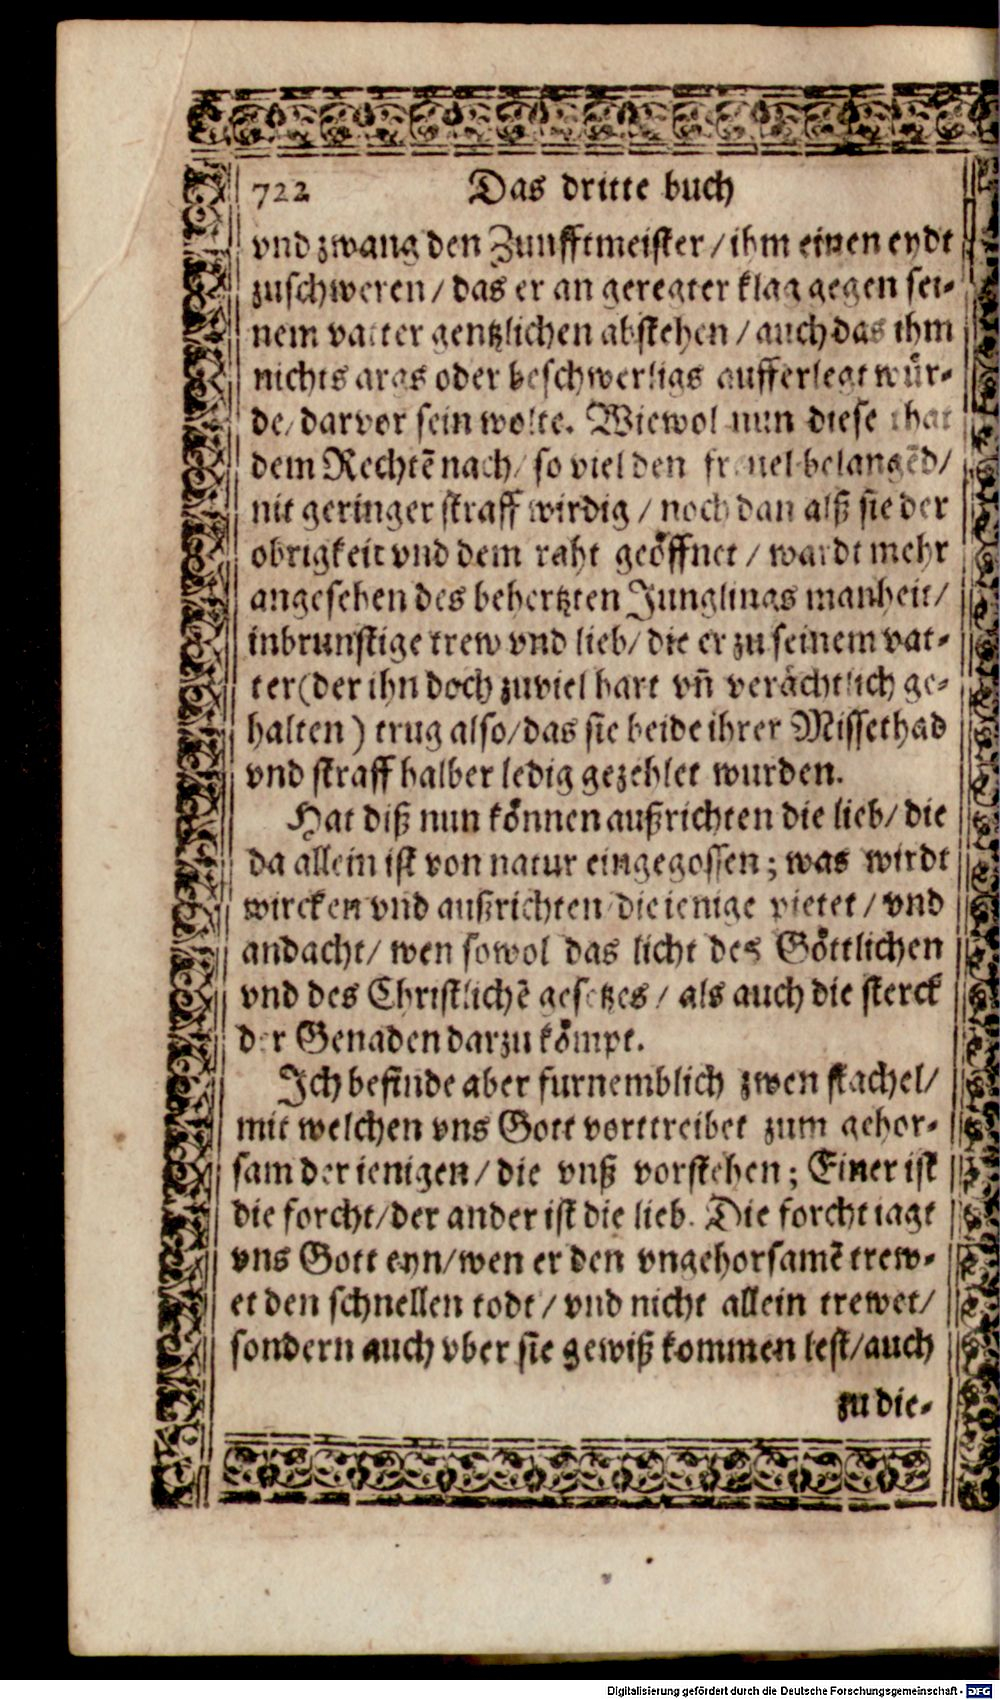 722 Das dritte buch
vnd zwang den Zunfftmeister / ihm einen eydt
zuschweren / das er an geregter klag gegen sei-
nem vatter gentzlichen abstehen / auch das ihm
nichts args oder beschwerligs aufferlegt wuͤr-
de / darvor sein wolte. Wiewol nun diese that
dem Rechtẽ nach / so viel den freuel belangẽd /
nit geringer straff wirdig / noch dan alß sie der
obrigkeit vnd dem raht geoͤffnet / wardt mehr
angesehen des behertzten Junglings manheit /
inbrunstige trew vnd lieb / die er zu seinem vat-
ter (der ihn doch zuviel hart vn̄ veraͤchtlich ge-
halten) trug also / das sie beide ihrer Missethad
vnd straff halber ledig gezehlet wurden.
Hat diß nun koͤnnen außrichten die lieb / die
da allein ist von natur eingegossen; was wirdt
wircken vnd außrichten dieienige pietet / vnd
andacht / wen sowol das licht des Goͤttlichen
vnd des Christlichẽ gesetzes / als auch die sterck
der Genaden darzu koͤmpt.
Ich befinde aber furnemblich zwen stachel /
mit welchen vns Gott vorttreibet zum gehor-
sam der ienigen / die vnß vorstehen; Einer ist
die forcht / der ander ist die lieb. Die forcht iagt
vns Gott eyn / wen er den vngehorsamẽ trew-
et den schnellen todt / vnd nicht allein trewet /
sondern auch vber sie gewiß kommen lest / auch
zu die-
Digitalisierung gefördert durch die Deutsche Forschungsgemeinschaft - DFG